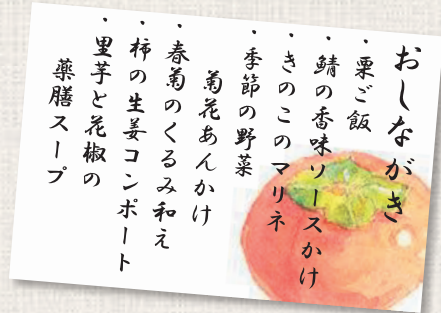 おしながき
・栗ご飯
・鯖の香味ソースかけ
・きのこのマリネ
・季節の野菜
菊花あんかけ
・春菊のくるみ和え
・柿の生姜コンポート
・里芋と花椒の
薬膳スープ